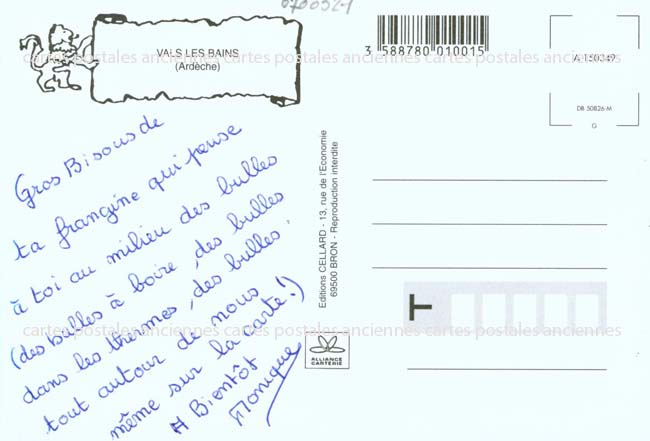 0700921
VALS LES BAINS
(Ardèche)
3 588780 010015
A 150349
DB 50826-M
G
Gros Bisous de
ta frangine qui pense
à toi au milieu des bulles
(des bulles à boire, des bulles
dans les thermes, des bulles
tout autour de nous
même sur la carte !)
A Bientôt
Monique
Editions CELLARD - 13, rue de l'Economie
69500 BRON - Reproduction interdite
ALLIANCE
CARTERIE
cartes postales anciennes cartes postales anciennes cartes postales anciennes
cartes postales anciennes cartes postales anciennes cartes postales anciennes